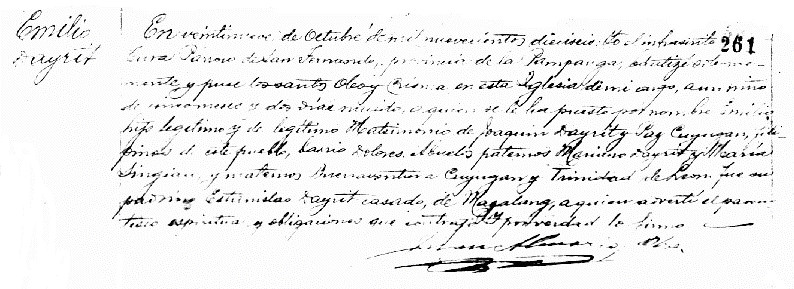 Emilio
Dayrit
261
En veintinueve de Octubre de mil novecientos dieciseis Yo el infrascrito
Cura Parroco de San Fernando, provincia de la Pampanga, bautizé solemne-
mente y puse los santos Oleo y Crisma en esta Iglesia de mi cargo, a un niño
de cinco meses y dos dias nacido, a quien se le ha puesto por nombre Emilio
hijo legitimo y de legitimo Matrimonio de Joaquin Dayrit y Paz Cuyugan, fili-
pinos de este pueblo, barrio Dolores. Abuelos paternos Mariano Dayrit y Maria
Singian, y maternos Buenaventura Cuyugan y Trinidad de Leon. fue su
padrino Estanislao Dayrit casado, de Magalang, a quien advertí el paren-
tesco espiritual y obligaciones que contrajo. Y por verdad lo firmo